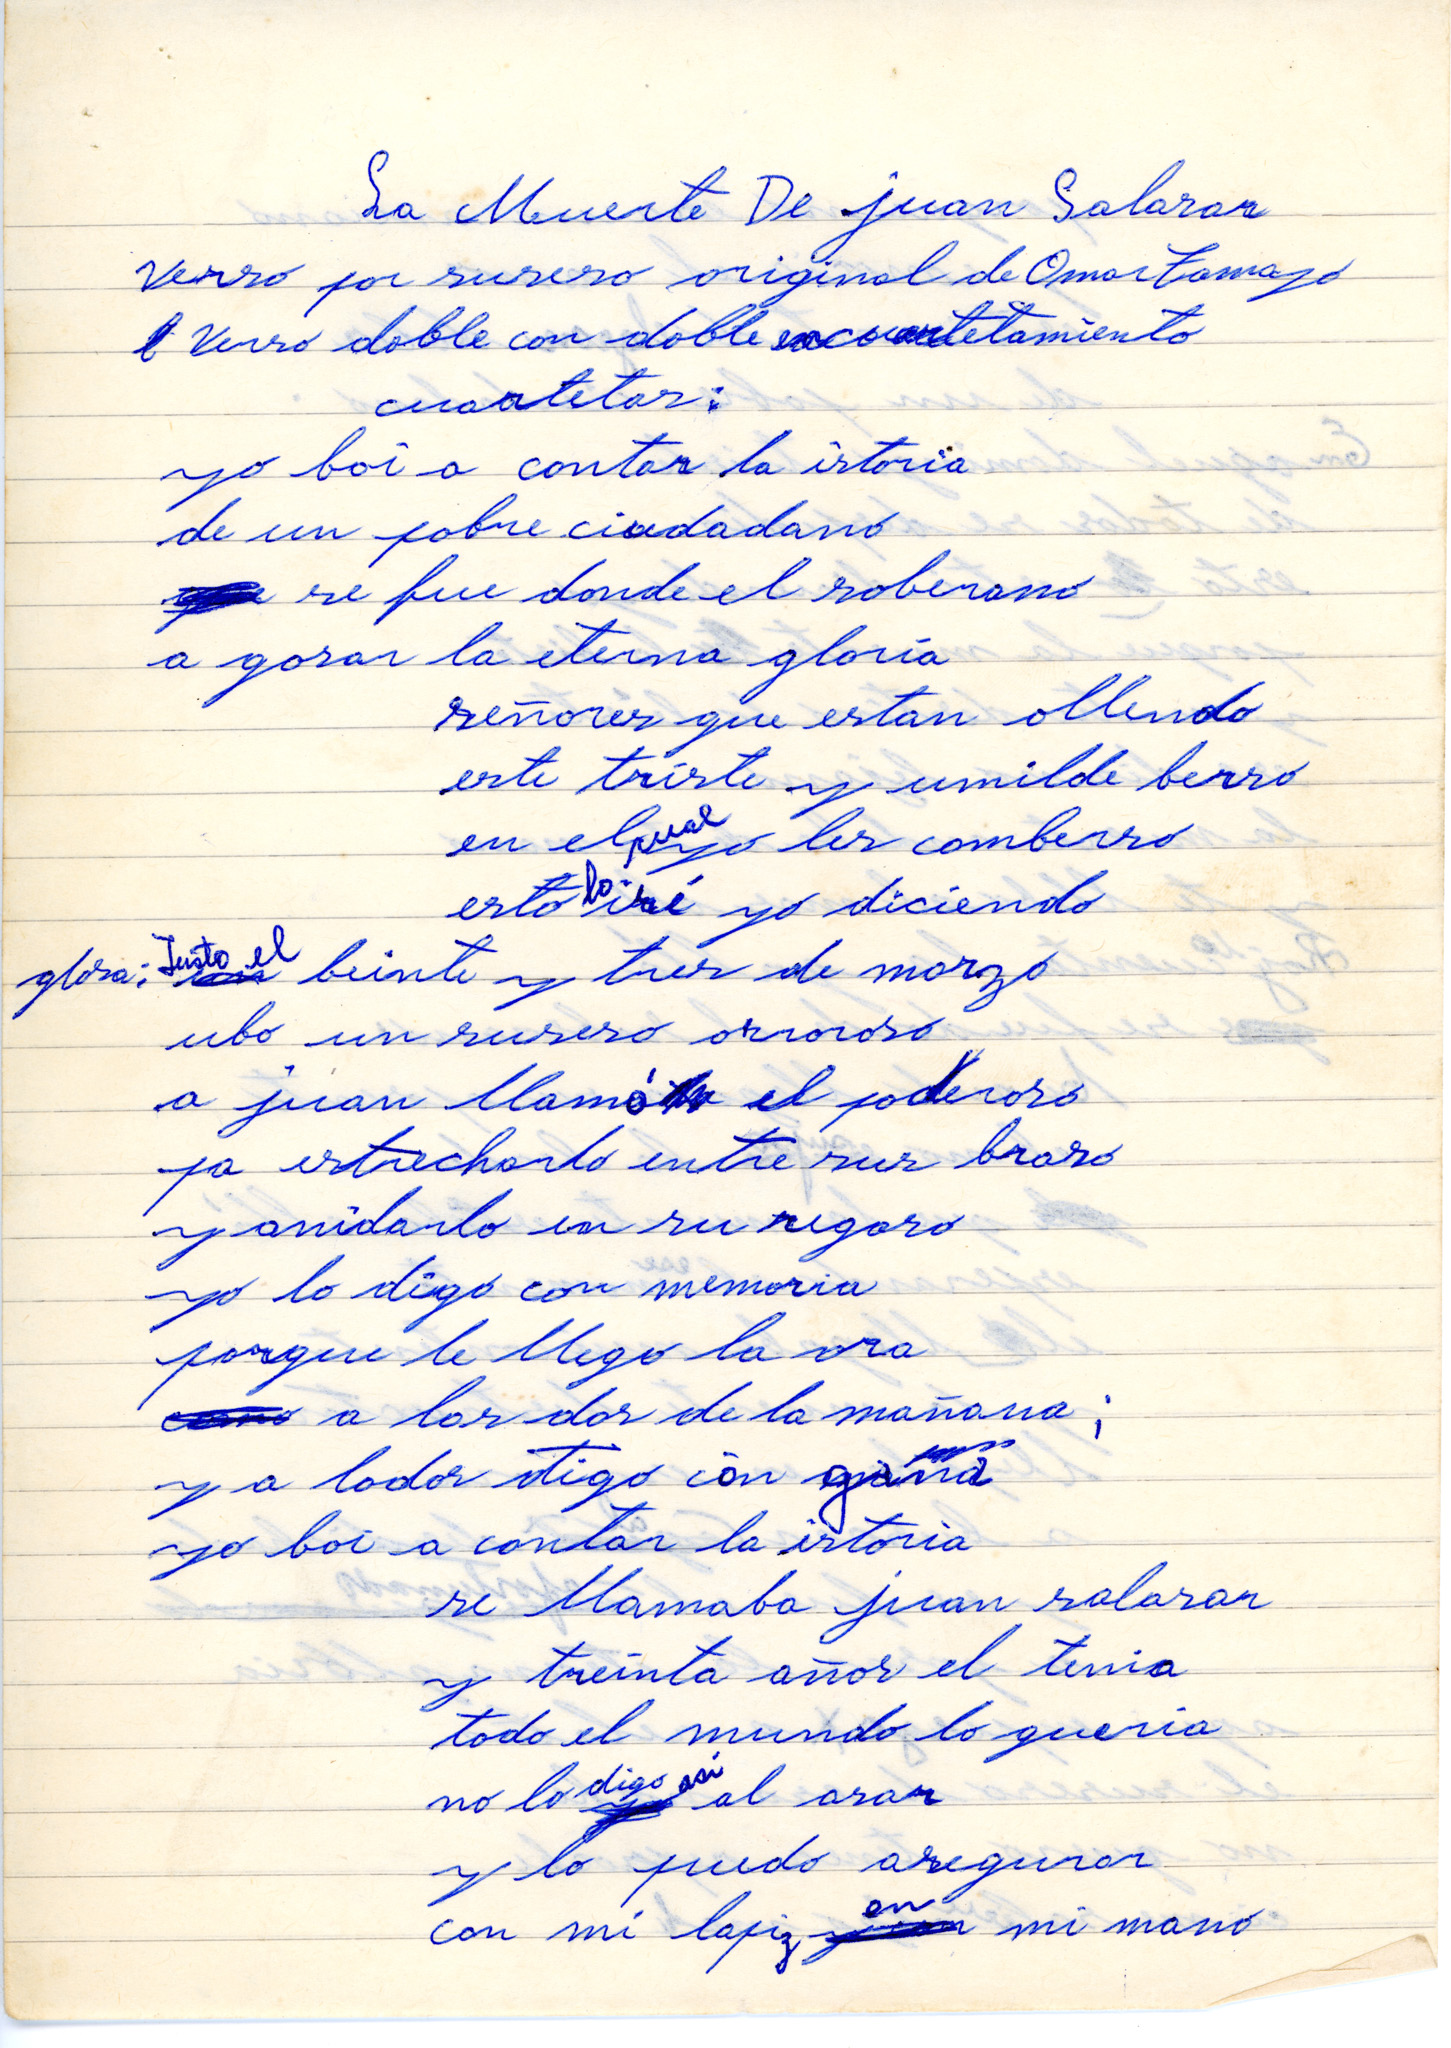 La Muerte De juan Salasar
Verso por suseso original de Omar Tamayo
Verso doble con doble encuartetamiento
cuartetas:
yo boi a contar la istoria
de un pobre ciudadano
se fue donde el soberano
a gosar la eterna gloria
señores que estan ollendo
este triste y umilde berso
en el cual yo les comberso
esto lo iré yo diciendo
glosa: Justo el beinte y tres de marzo
ubo un suseso orroroso
a juan llamó el poderoso
pa estrecharlo entre sus braso
y anidarlo en su regaso
yo lo digo con memoria
porque le llego la ora
a las dos de la mañana;
y a lodos digo con gana
yo boi a contar la istoria
se llamaba juan salasar
y treinta años el tenia
todo el mundo lo queria
no lo digo asi al asar
y lo puedo asegurar
con mi lapiz en mi mano